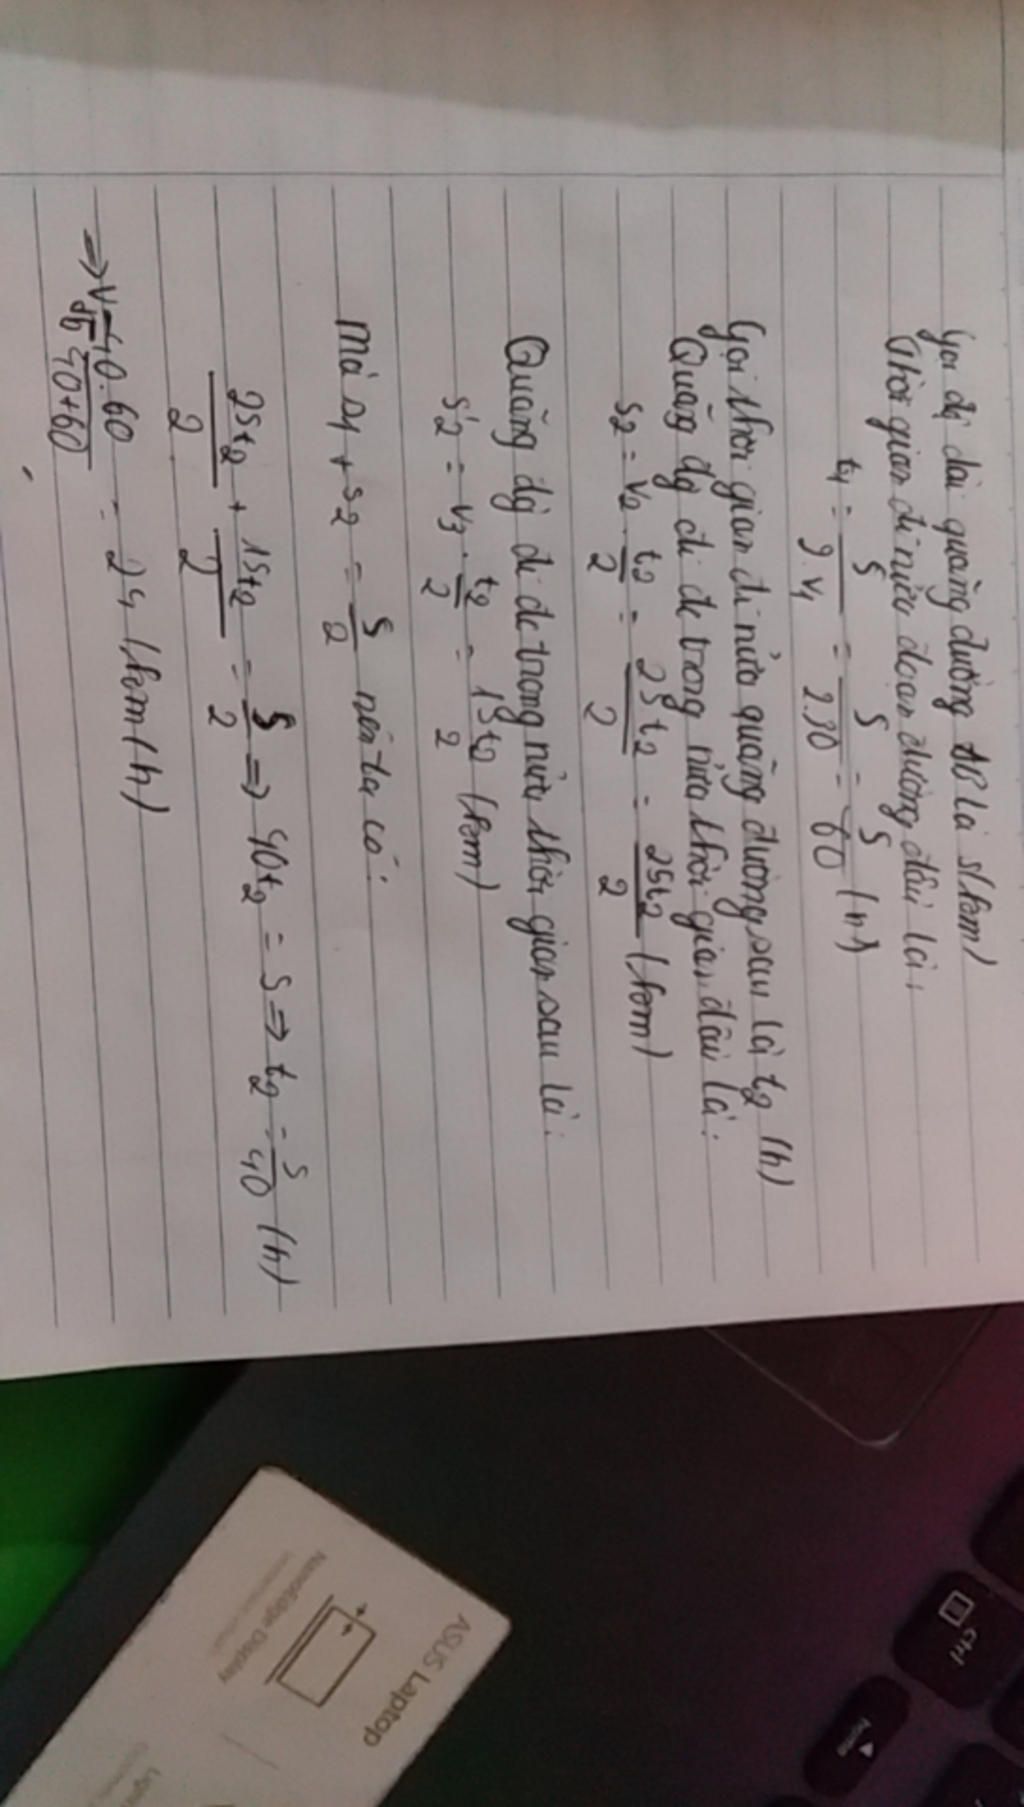 Gọi độ dài quãng đường AB là s(km)
Thời gian đi nửa đoạn đường đầu là:
t1 = S/2.V1 = S/2.30 = S/60 (h)
Gọi thời gian đi nửa quãng đường sau là t2 (h)
Quãng đg đi đc trong nửa thời gian đầu là:
S2 = V2 . t2/2 = 25t2/2 = 25t2/2 (km)
Quãng đg đi đc trong nửa thời gian sau là:
S'2 = V3 . t2/2 = 15t2/2 (km)
mà s1 + s2 = S/2 nên ta có:
25t2/2 + 15t2/2 = S/2 => 40t2 = S => t2 = S/40 (h)
=> Vtb = 40.60/40+60 = 24 (km/h)
ASUS Laptop
NanoEdge Display
Ctrl
home